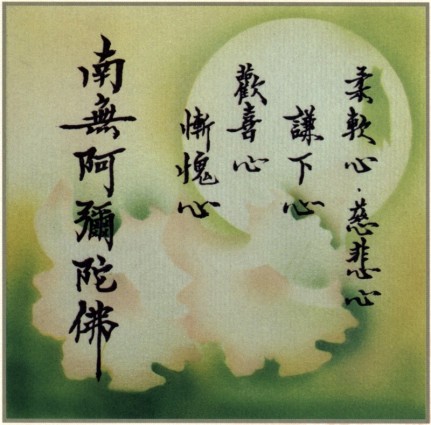 柔軟心·慈悲心
謙下心
歡喜心
慚愧心
南無阿彌陀佛